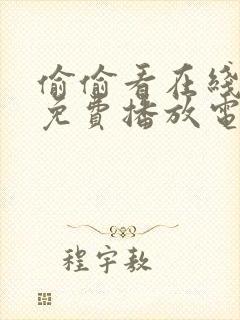 偷偷看在线
免費播放電
程宇敖